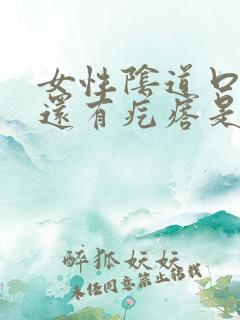 女性陰道口
還有疙瘩是
醉狐妖妖
未經同意禁止轉載